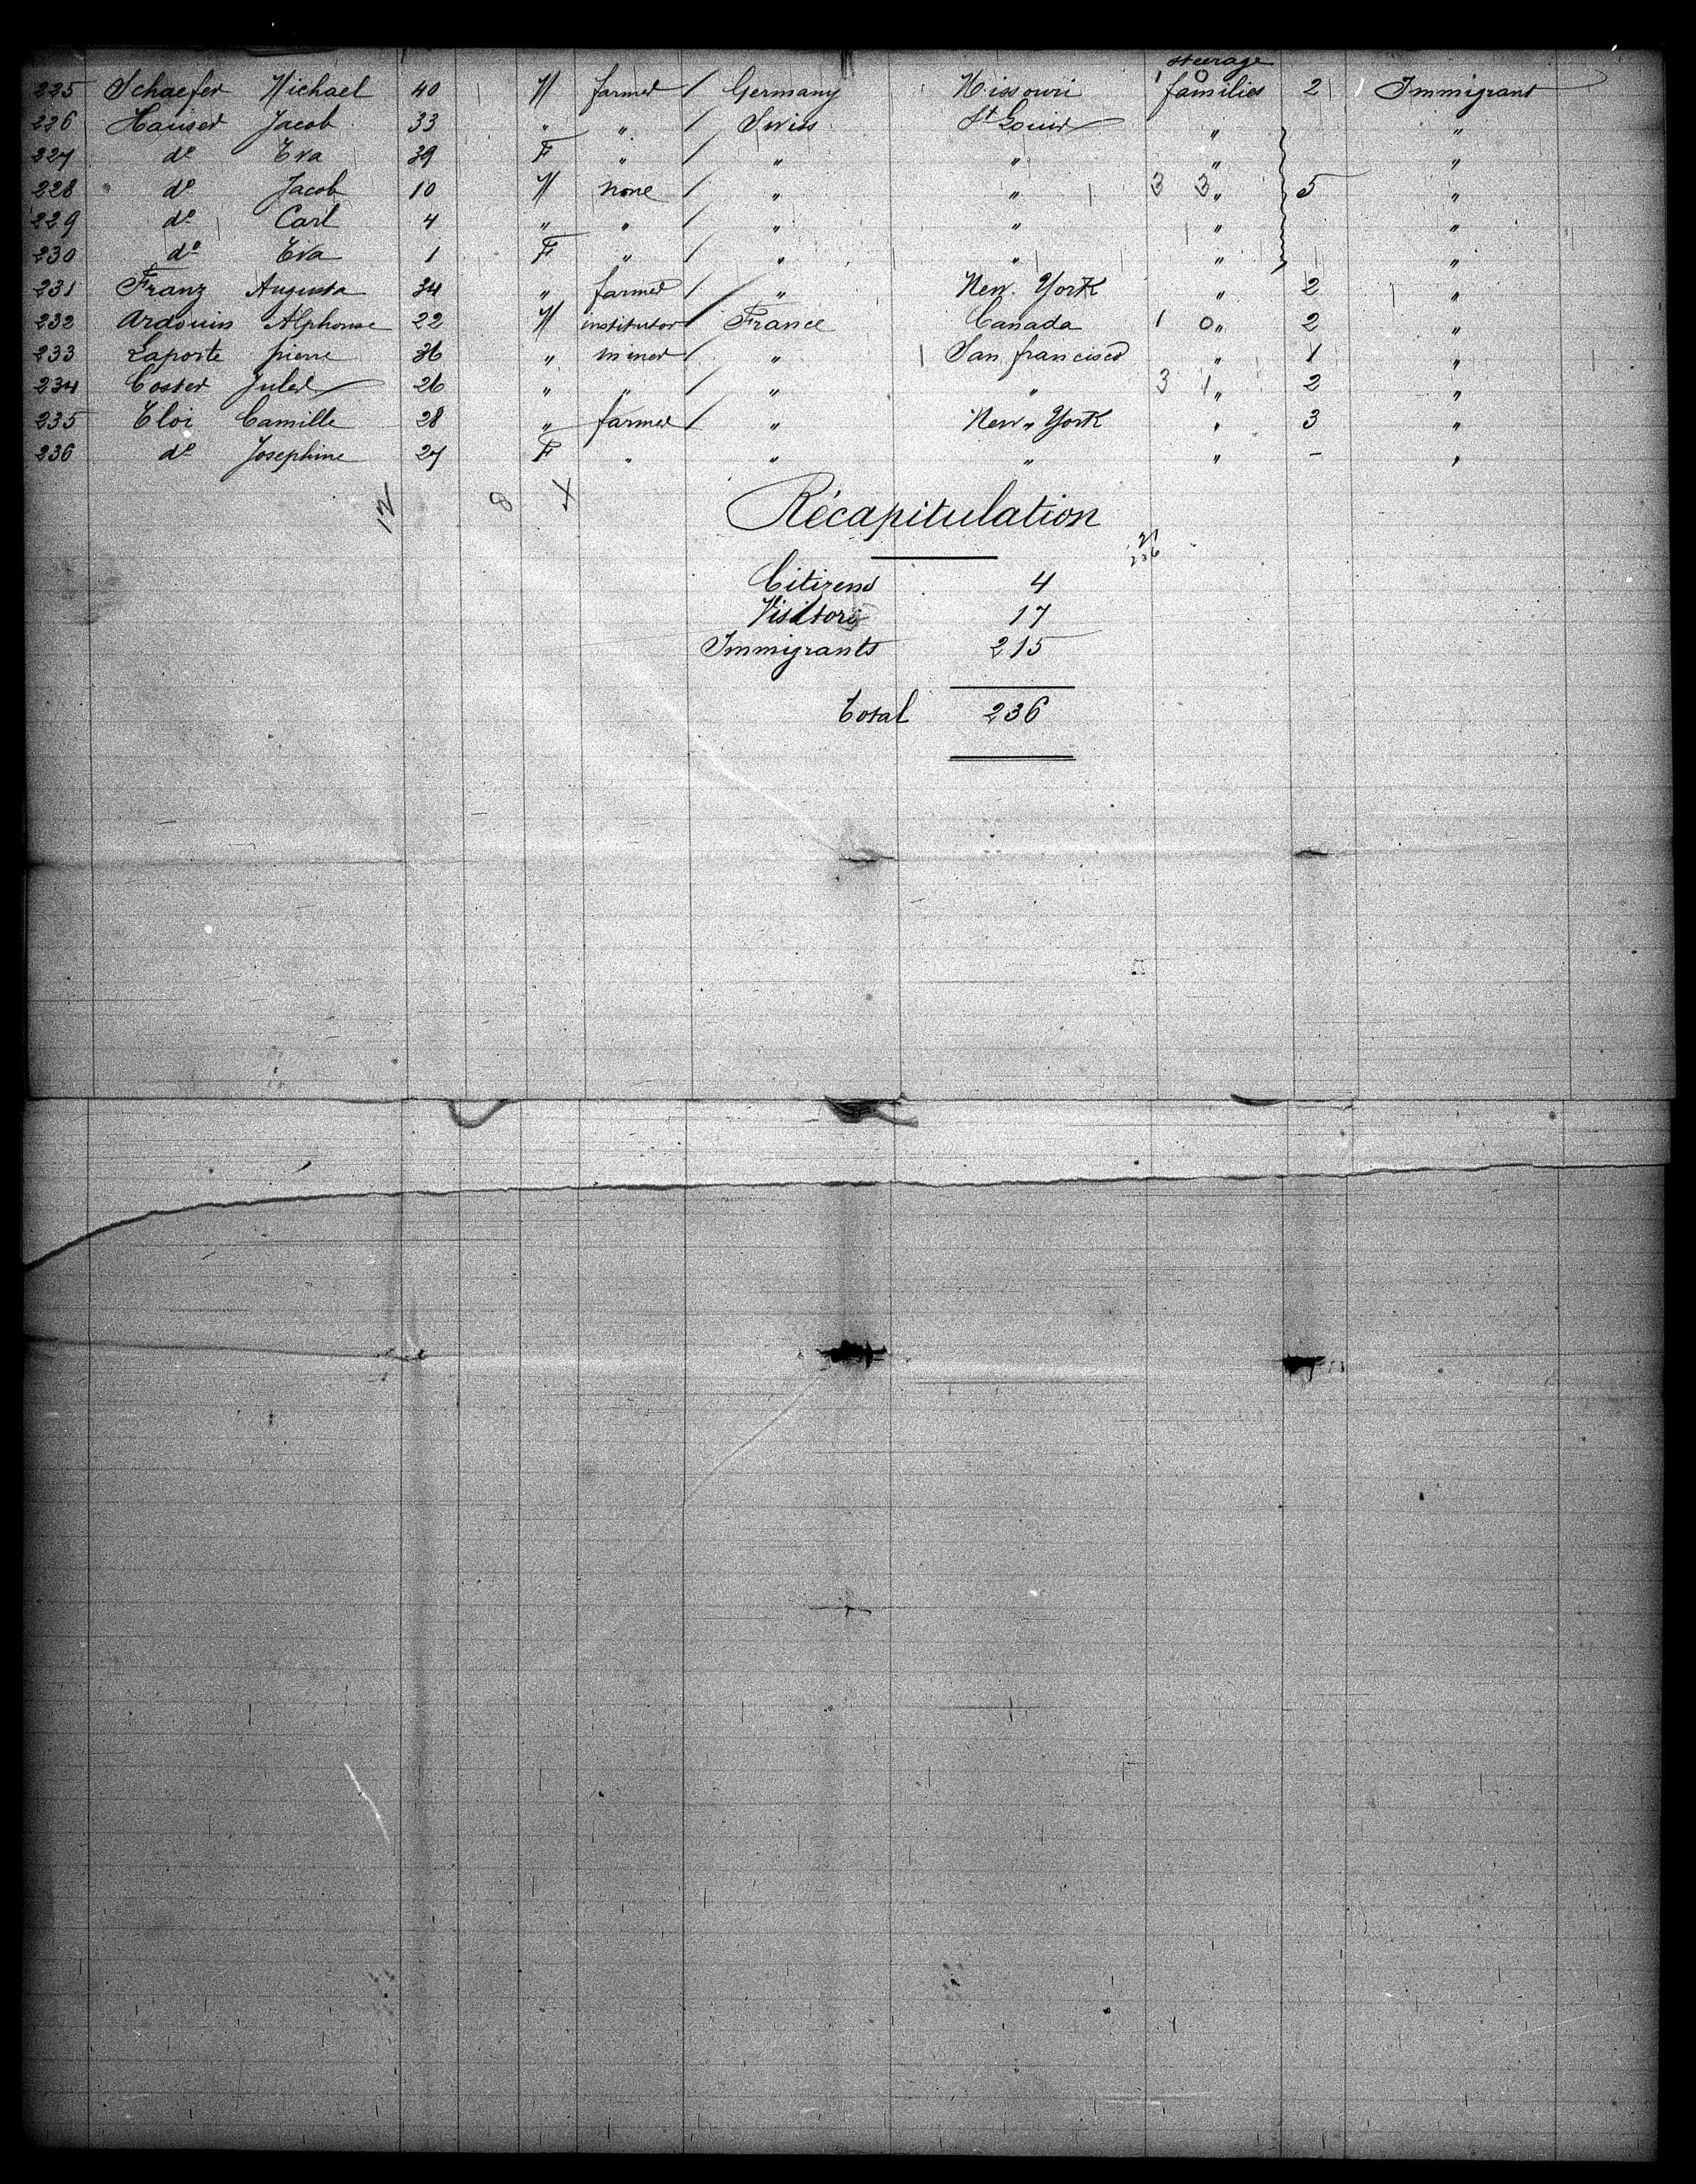 steerage
225 Schaefer Michael 40 M farmer / Germany Missouri 1 0 families 2 Immigrant
226 Hauser Jacob 33 " " / Swiss St Louis " "
227 do Eva 39 F " / " " " "
228 do Jacob 10 M none / " " 3 3 " 5 "
229 do Carl 4 " " / " " " "
230 do Eva 1 F " / " " " "
231 Franz Augusta 34 " farmer / " New York " 2 "
232 Ardouin Alphonse 22 M institutor / France Canada 1 0 " 2 "
233 Laporte pierre 36 " miner / " San francisco " 1 "
234 Coster Jules 26 " " / " " 3 1 " 2 "
235 Eloi Camille 28 " farmer / " New " York " 3 "
236 do Josephine 27 F " " " " - "
12 8 4
Récapitulation
21
236
Citizens 4
Visitors 17
Immigrants 215
Total 236